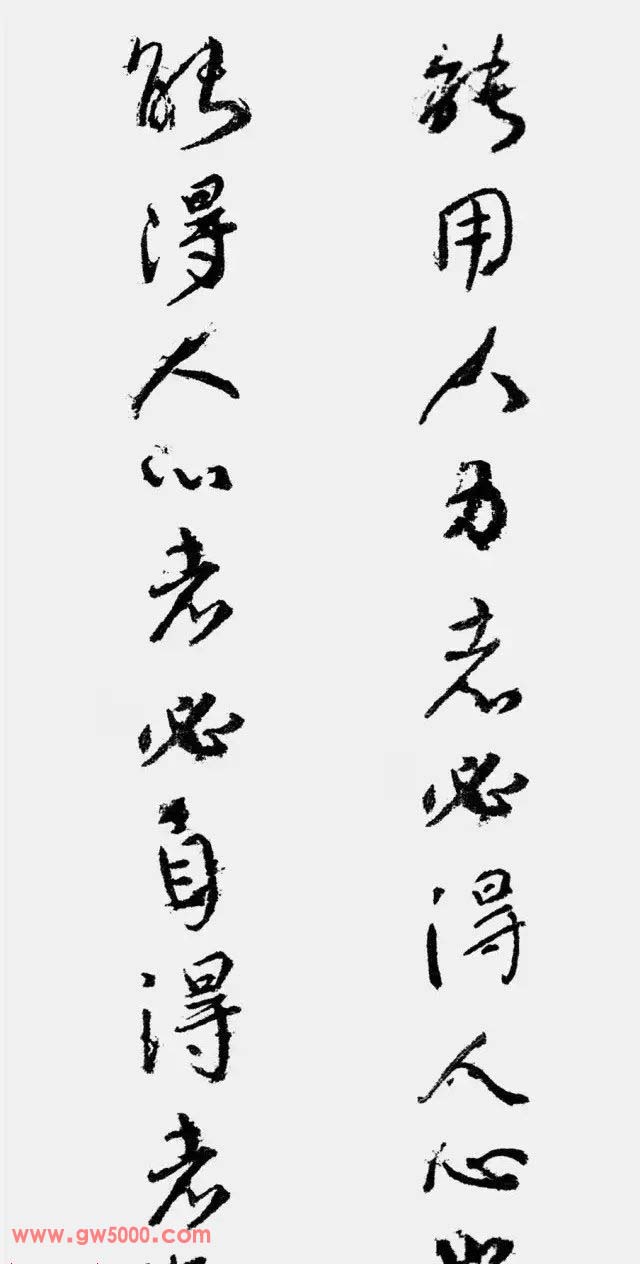 能用人力者必得人心
能得人心者必自得者
www.gw5000.com